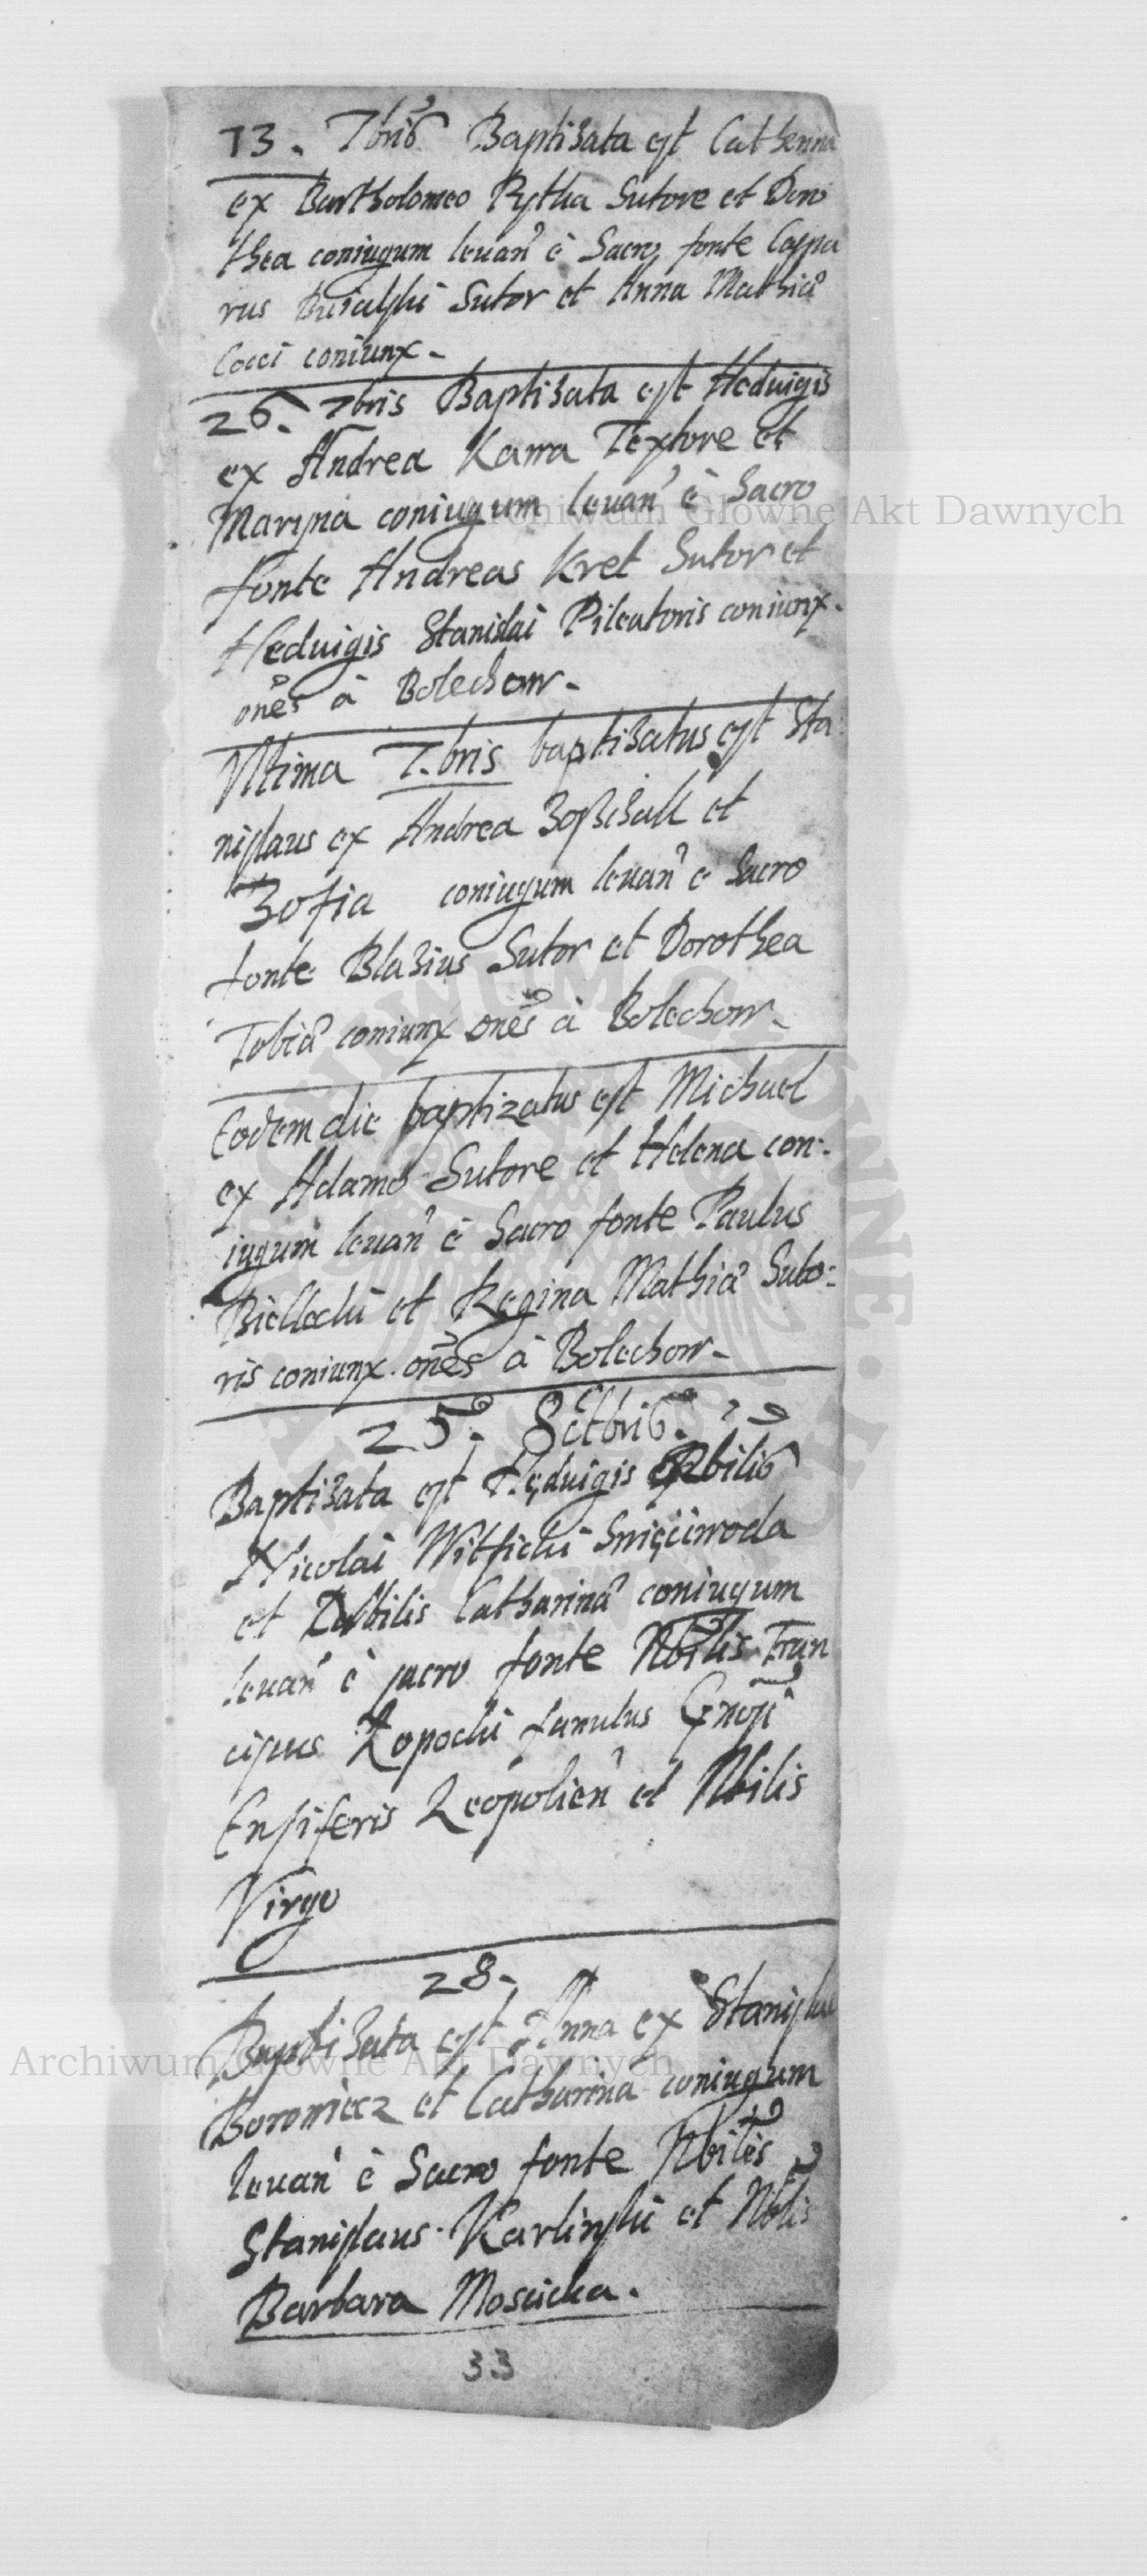 13. 7bris Baptisata est Cathenna
ex Bartholomeo Rytka Sutore et Doro
thea coniugum leuan̄ è Sacro fonte Caspa
rus Sutor et Anna Mathiæ
Cocci coniunx.
26. 7bris Baptisata est Heduigis
ex Andrea Kawa Textore et
Maryna coniugum leuan̄ è Sacro
fonte Andreas Kret Sutor et
Heduigis Stanislai Pileatoris coniunx.
oñes à Bolechow.
Vltima 7.bris baptisatus est Sta
nislaus ex Andrea et
Zofia coniugum leuan̄ e Sacro
fonte Blasius Sutor et Dorothea
Tobiæ coniunx oñes à Bolechow.
Eodem die baptizatus est Michael
ex Adamo Sutore et Helena con:
iugum leuan̄ è Sacro fonte Paulus
Bielecki et Regina Mathiæ Suto:
ris coniunx. oñes à Bolechow.
25. 8ctbris.
Baptisata est Heduigis Nobilis
Nicolai Witficki
et Nobilis Catharinæ coniugum
leuan̄ è sacro fonte Nobilis Fran
ciscus Lopocki famulus Gnosi
Ensiferis Leopolien̄ et Nbilis
Virgo
28.
Baptisata est Anna ex Stanislao
Borowiecz et Catharina coniugum
leuan̄ è Sacro fonte Nbiles
Stanislaus Karlinski et Nblis
Barbara Moscicka.
33
Archiwum Główne Akt Dawnych
Archiwum Główne Akt Dawnych